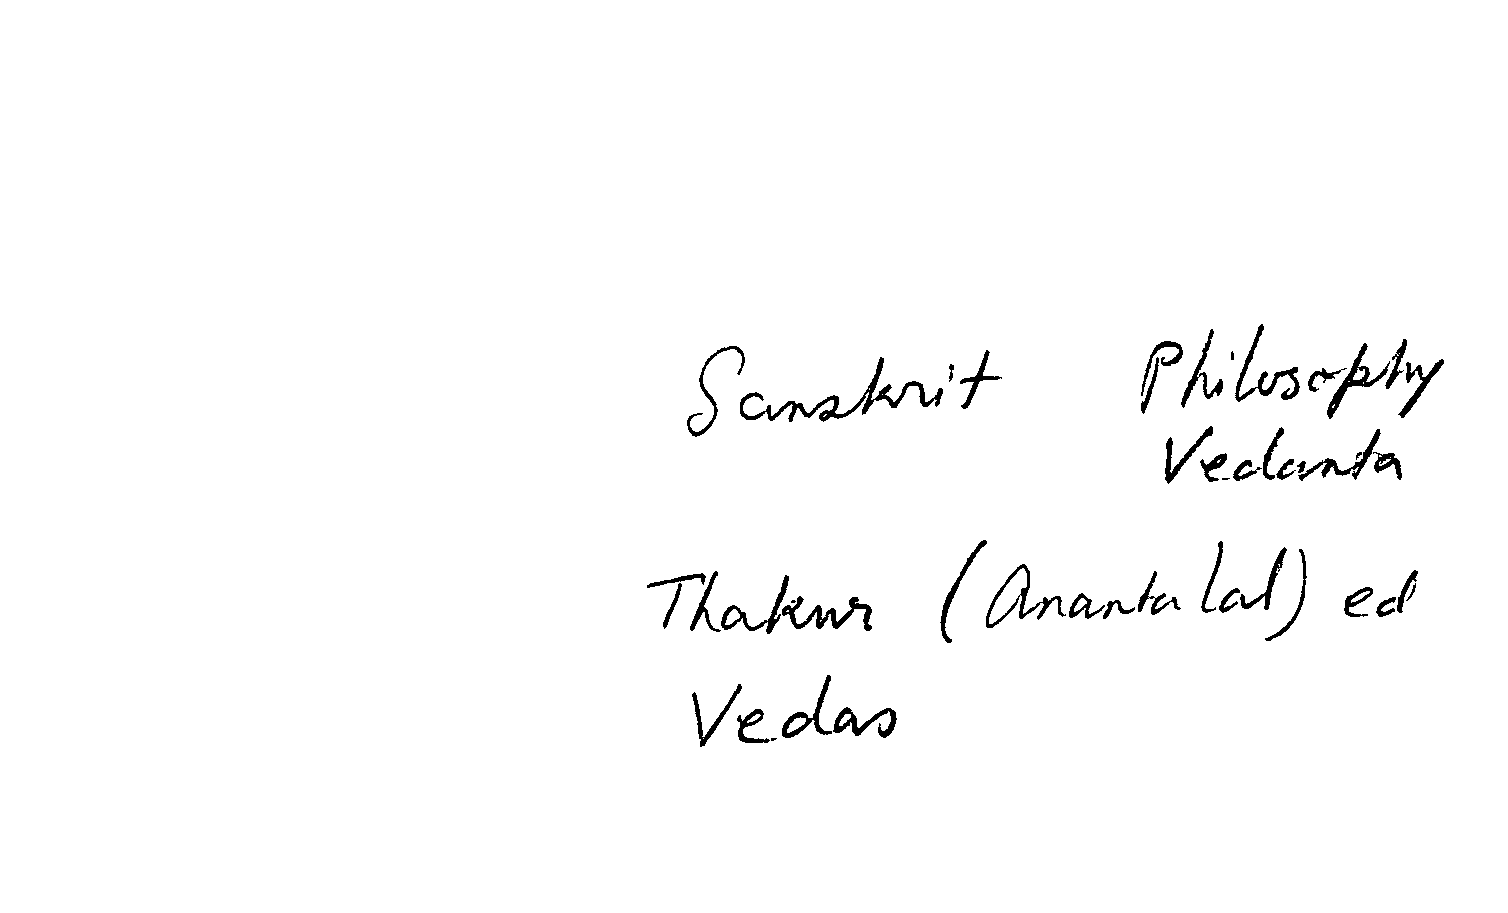 Sanskrit Philosophy
Vedanta
Thakur (Ananta Lal) ed
Vedas